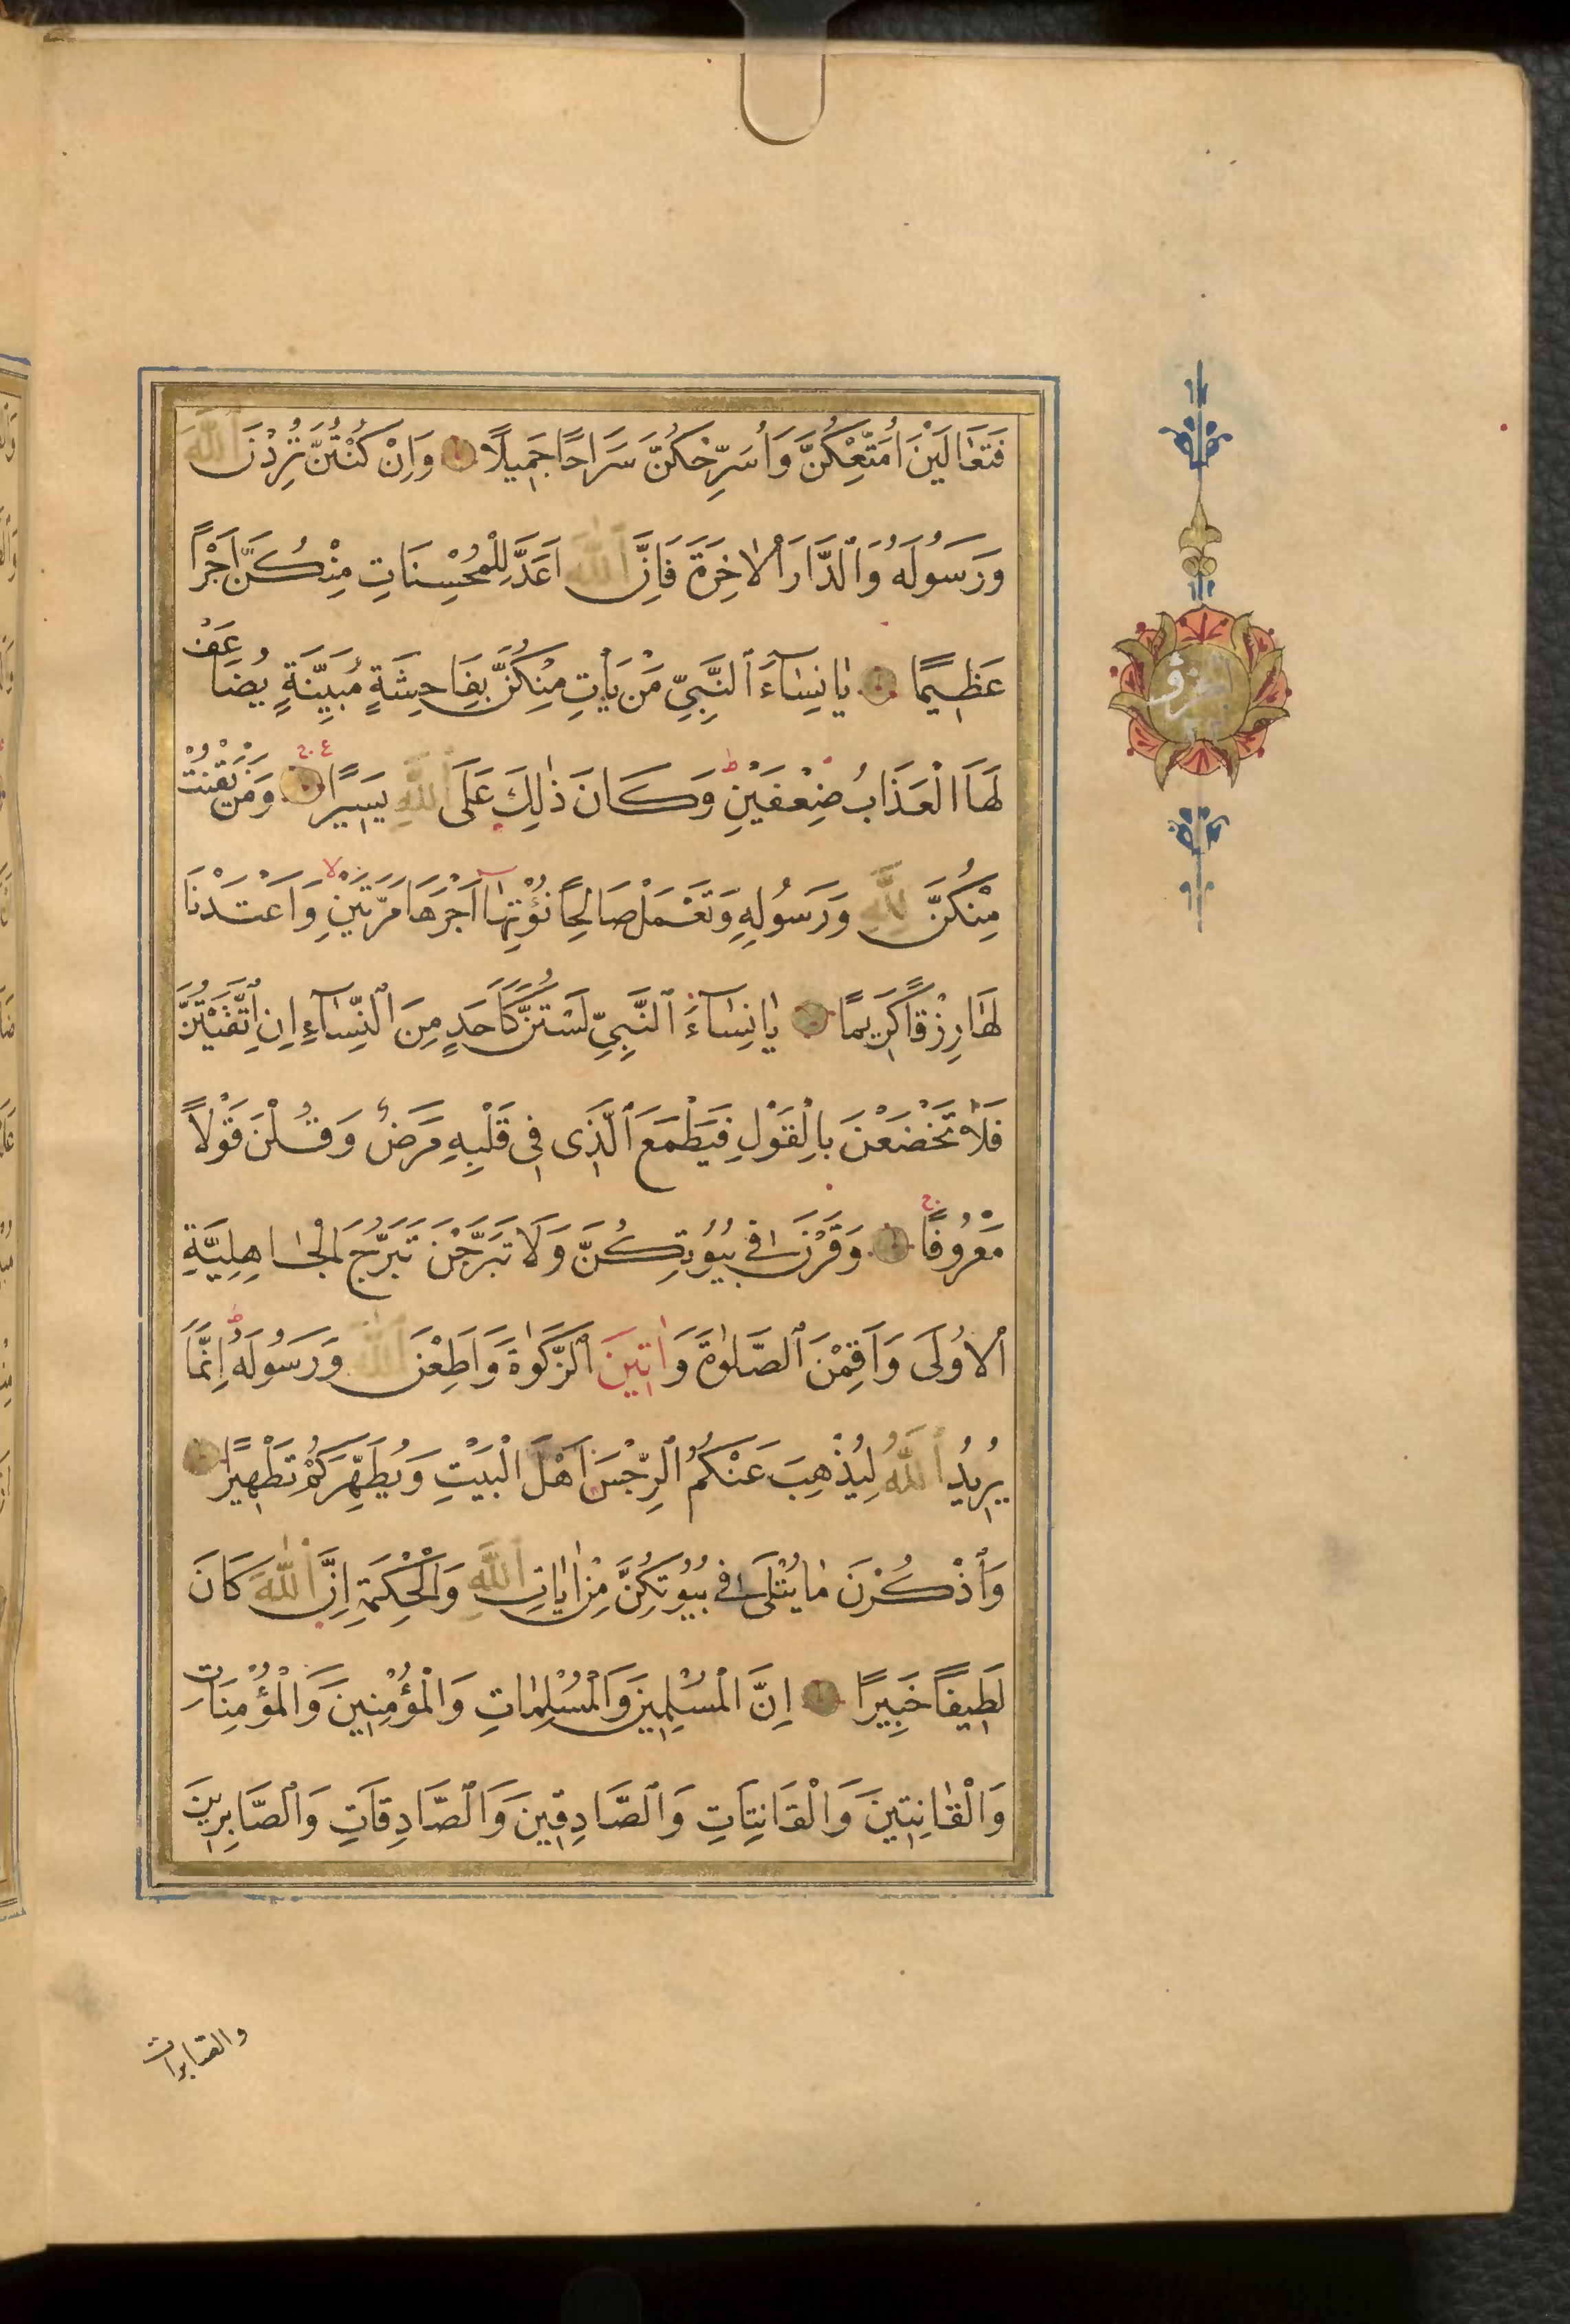 فَتَعَالَيْنَ أُمَتِّعْكُنَّ وَأُسَرِّحْكُنَّ سَرَاحًا جَمِيلًا وَاِنْ كُنْتُنَّ تُرِدْنَ ٱللّٰهَ
وَرَسُولَهُ وَٱلدَّارَ ٱلْاخِرَةَ فَاِنَّ ٱللّٰهَ اَعَدَّ لِلْمُحْسِنَاتِ مِنْكُنَّ اَجْرًا
عَظِيمًا يَا نِسَآءَ ٱلنَّبِىِّ مَنْ يَأْتِ مِنْكُنَّ بِفَاحِشَةٍ مُبَيِّنَةٍ يُضَاعَفْ
لَهَا الْعَذَابُ ضِعْفَيْنِ ط وَكَانَ ذٰلِكَ عَلَى ٱللّٰهِ يَسِيرًا وَمَنْ يَقْنُتْ
مِنْكُنَّ لِلّٰهِ وَرَسُولِهِ وَتَعْمَلْ صَالِحًا نُؤْتِهَآ اَجْرَهَا مَرَّتَيْنِ لا وَاَعْتَدْنَا
لَهَا رِزْقًا كَرِيمًا يَا نِسَآءَ ٱلنَّبِىِّ لَسْتُنَّ كَاَحَدٍ مِنَ ٱلنِّسَآءِ اِنِ ٱتَّقَيْتُنَّ
فَلَا تَخْضَعْنَ بِالْقَوْلِ فَيَطْمَعَ ٱلَّذِى فِى قَلْبِهِ مَرَضٌ وَقُلْنَ قَوْلًا
مَعْرُوفًا وَقَرْنَ فِى بُيُوتِكُنَّ وَلَا تَبَرَّجْنَ تَبَرُّجَ الْجَاهِلِيَّةِ
ٱلْاُولَى وَاَقِمْنَ ٱلصَّلٰوةَ وَاٰتِينَ ٱلزَّكٰوةَ وَاَطِعْنَ ٱللّٰهَ وَرَسُولَهُ ط اِنَّمَا
يُرِيدُ ٱللّٰهُ لِيُذْهِبَ عَنْكُمُ ٱلرِّجْسَ اَهْلَ الْبَيْتِ وَيُطَهِّرَكُمْ تَطْهِيرًا
وَٱذْكُرْنَ مَا يُتْلَى فِى بُيُوتِكُنَّ مِنْ اٰيَاتِ ٱللّٰهِ وَالْحِكْمَةِ اِنَّ ٱللّٰهَ كَانَ
لَطِيفًا خَبِيرًا اِنَّ الْمُسْلِمِينَ وَالْمُسْلِمَاتِ وَالْمُؤْمِنِينَ وَالْمُؤْمِنَاتِ
وَالْقَانِتِينَ وَالْقَانِتَاتِ وَٱلصَّادِقِينَ وَٱلصَّادِقَاتِ وَٱلصَّابِرِينَ
والصّابرات